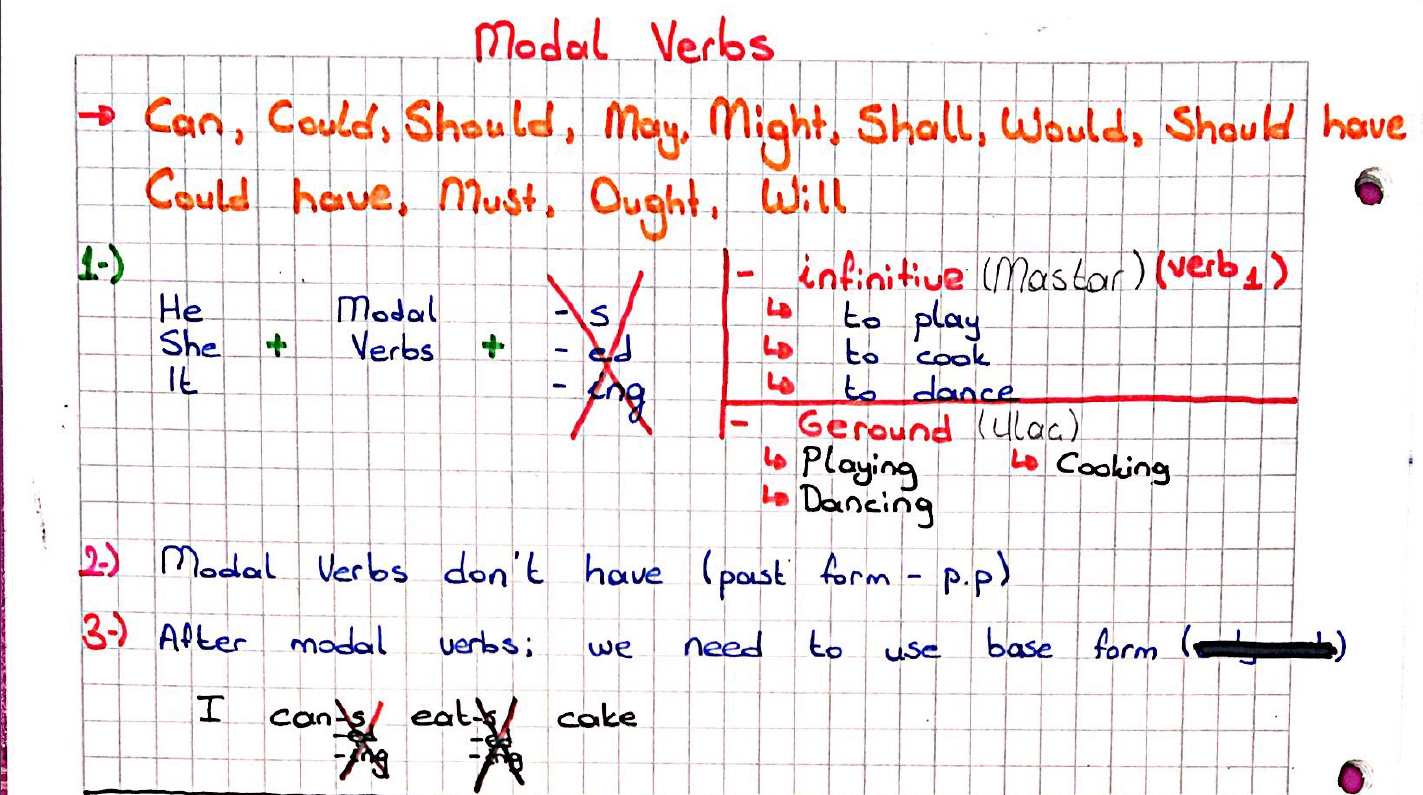 Modal Verbs
→ Can, Could, Should, May, Might, Shall, Would, Should have
Could have, Must, Ought, Will
1-)
He
She
It
+
Modal
Verbs
+
- s
- ed
- ing
- infinitive (Mastar) (verb 1)
↳ to play
↳ to cook
↳ to dance
- Geround (Ulaç)
↳ Playing ↳ Cooking
↳ Dancing
2-) Modal Verbs don't have (past form - p.p)
3-) After modal verbs; we need to use base form ( )
I can -s eat -s cake
-ed -ed
-ing -ing